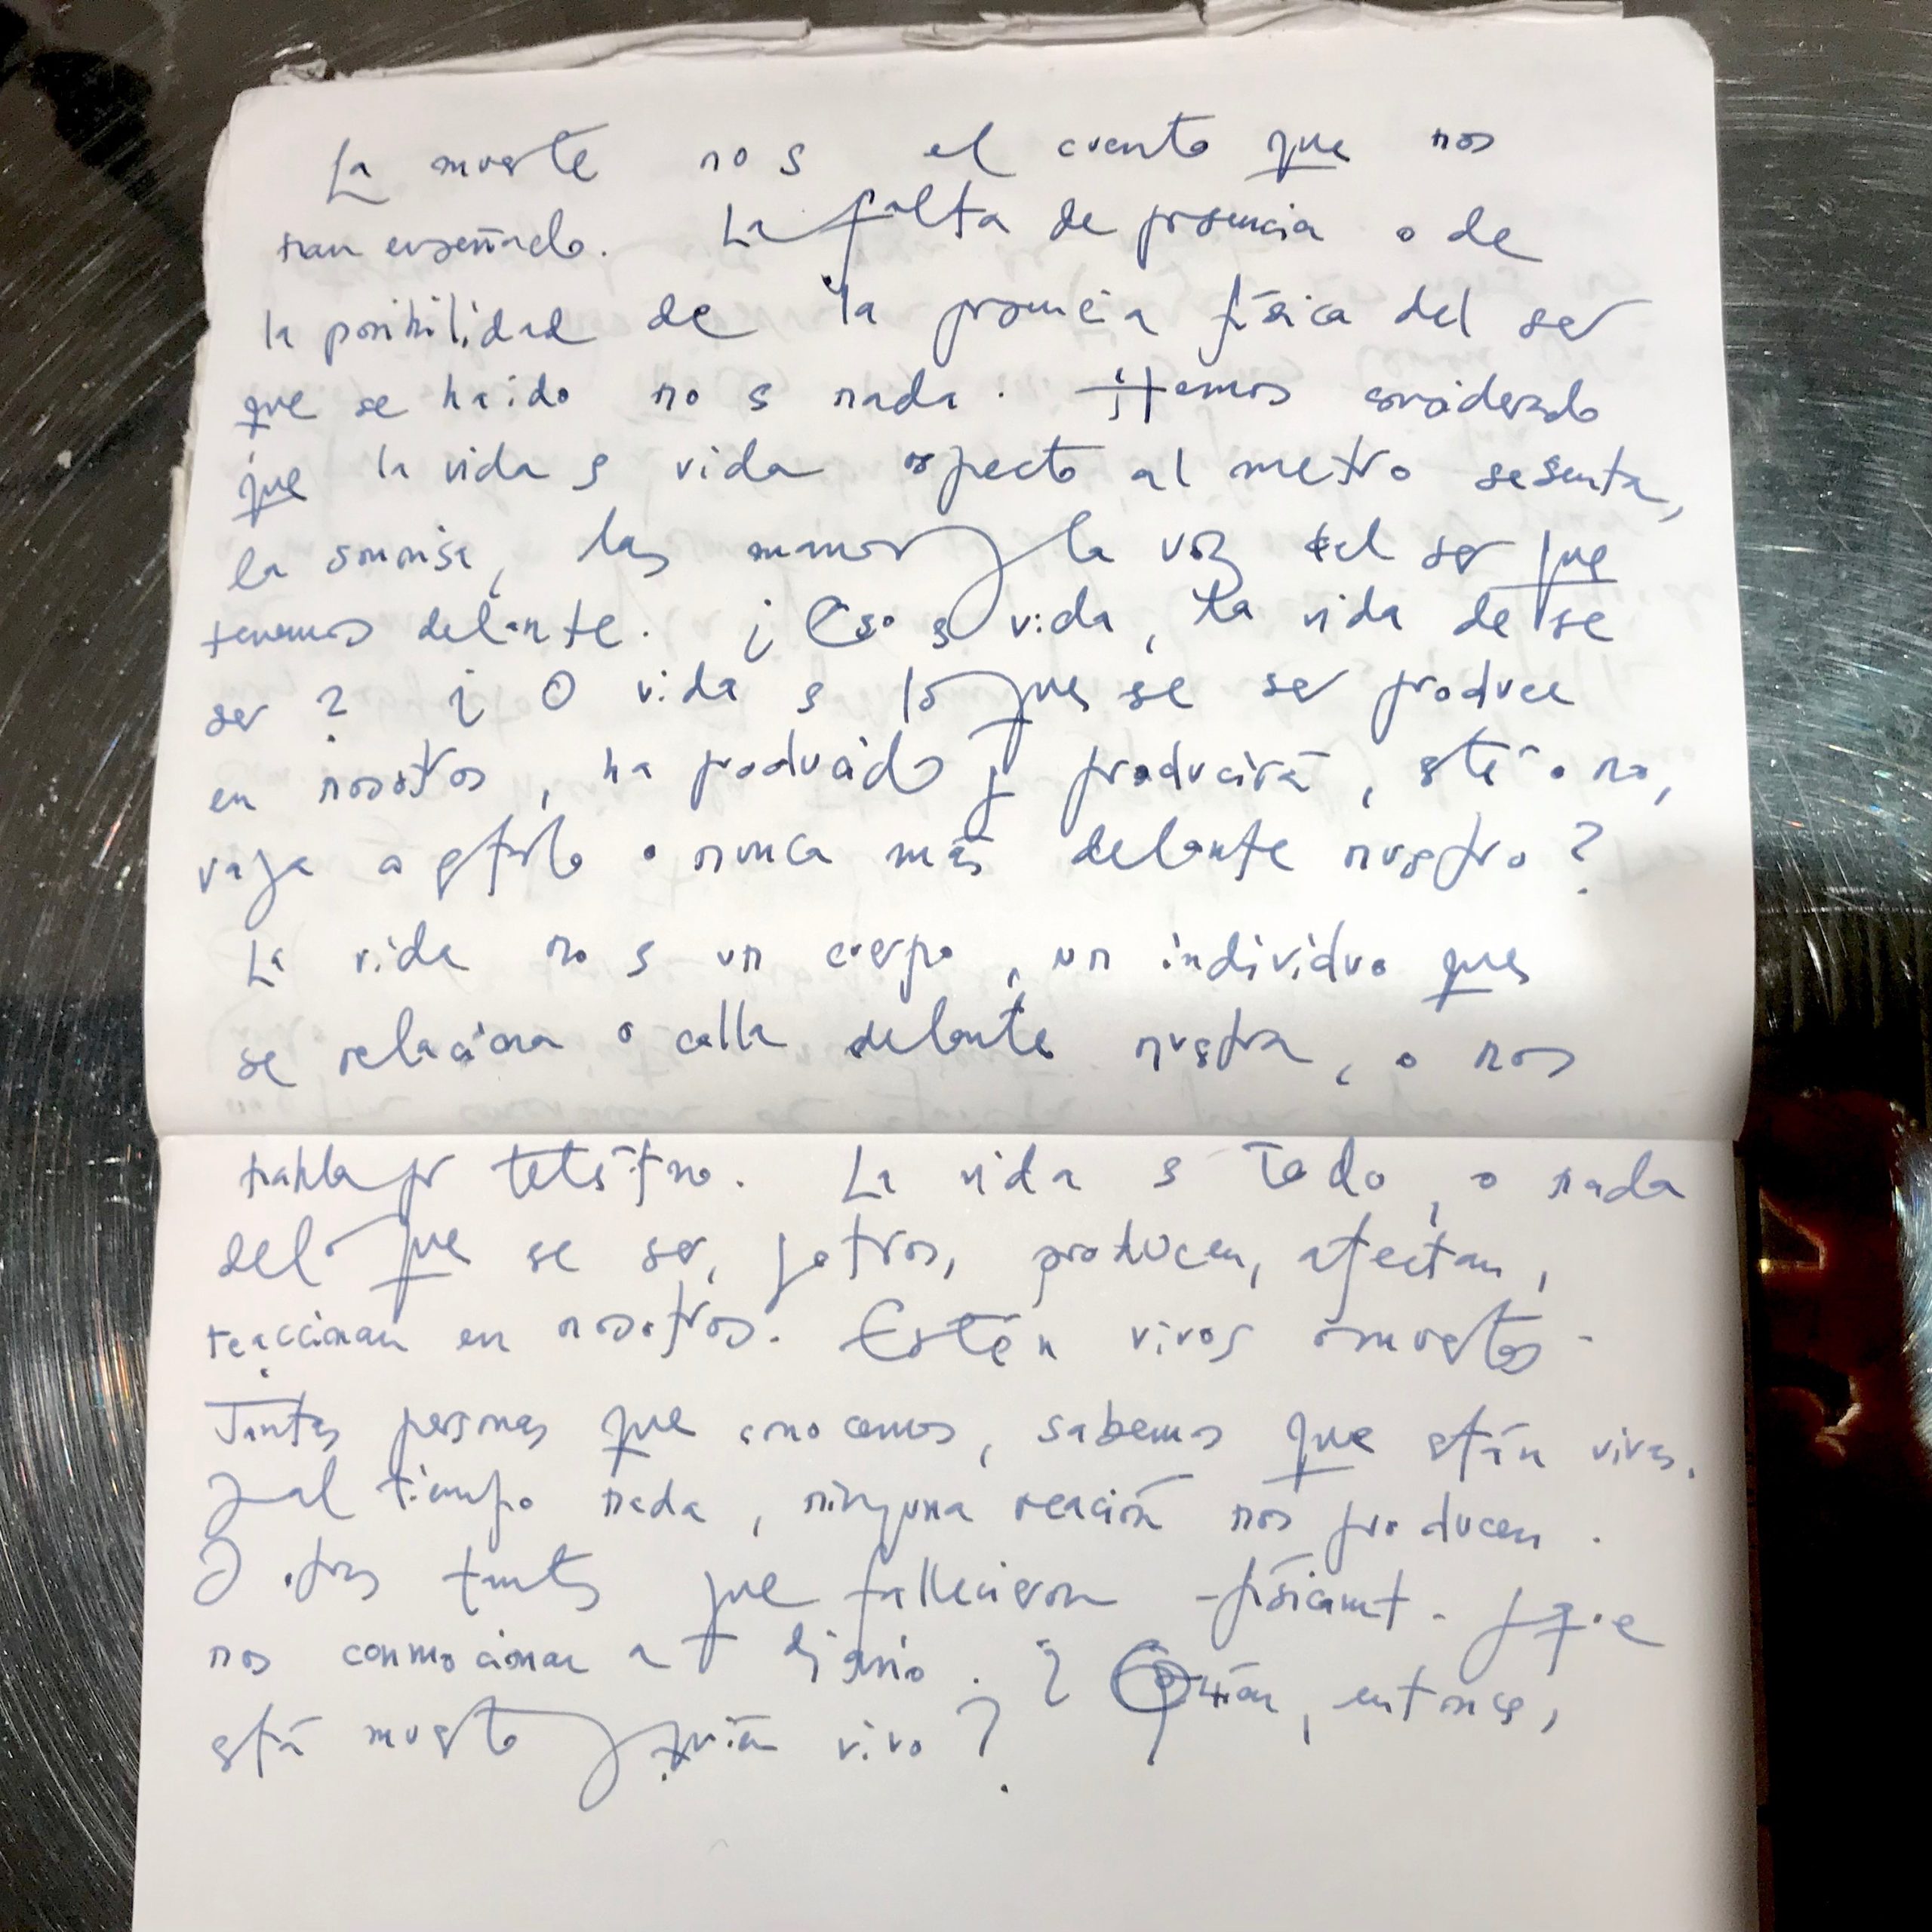 La muerte no es el cuento que nos
han enseñado. La falta de presencia o de
la posibilidad de la presencia física del ser
que se ha ido no es nada. Hemos considerado
que la vida es vida respecto al metro sesenta,
la sonrisa, las manos y la voz del ser que
tenemos delante. ¿Eso es vida, la vida de ese
ser? ¿O vida es lo que ese ser produce
en nosotros, ha producido y producirá, esté o no,
vaya a estarlo o nunca más delante nuestro?
La vida no es un cuerpo, un individuo que
se relaciona o calla delante nuestra, o nos
habla por teléfono. La vida es todo, o nada
de lo que ese ser, y otros, producen, afectan,
reaccionan en nosotros. Estén vivos o muertos.
Tantas personas que conocemos, sabemos que están vivas,
y al tiempo nada, ninguna reacción nos producen.
Y otras tantas que fallecieron -físicamt- y que
nos conmocionan a diario. ¿Quién, entonces,
está muerto y quién vivo?